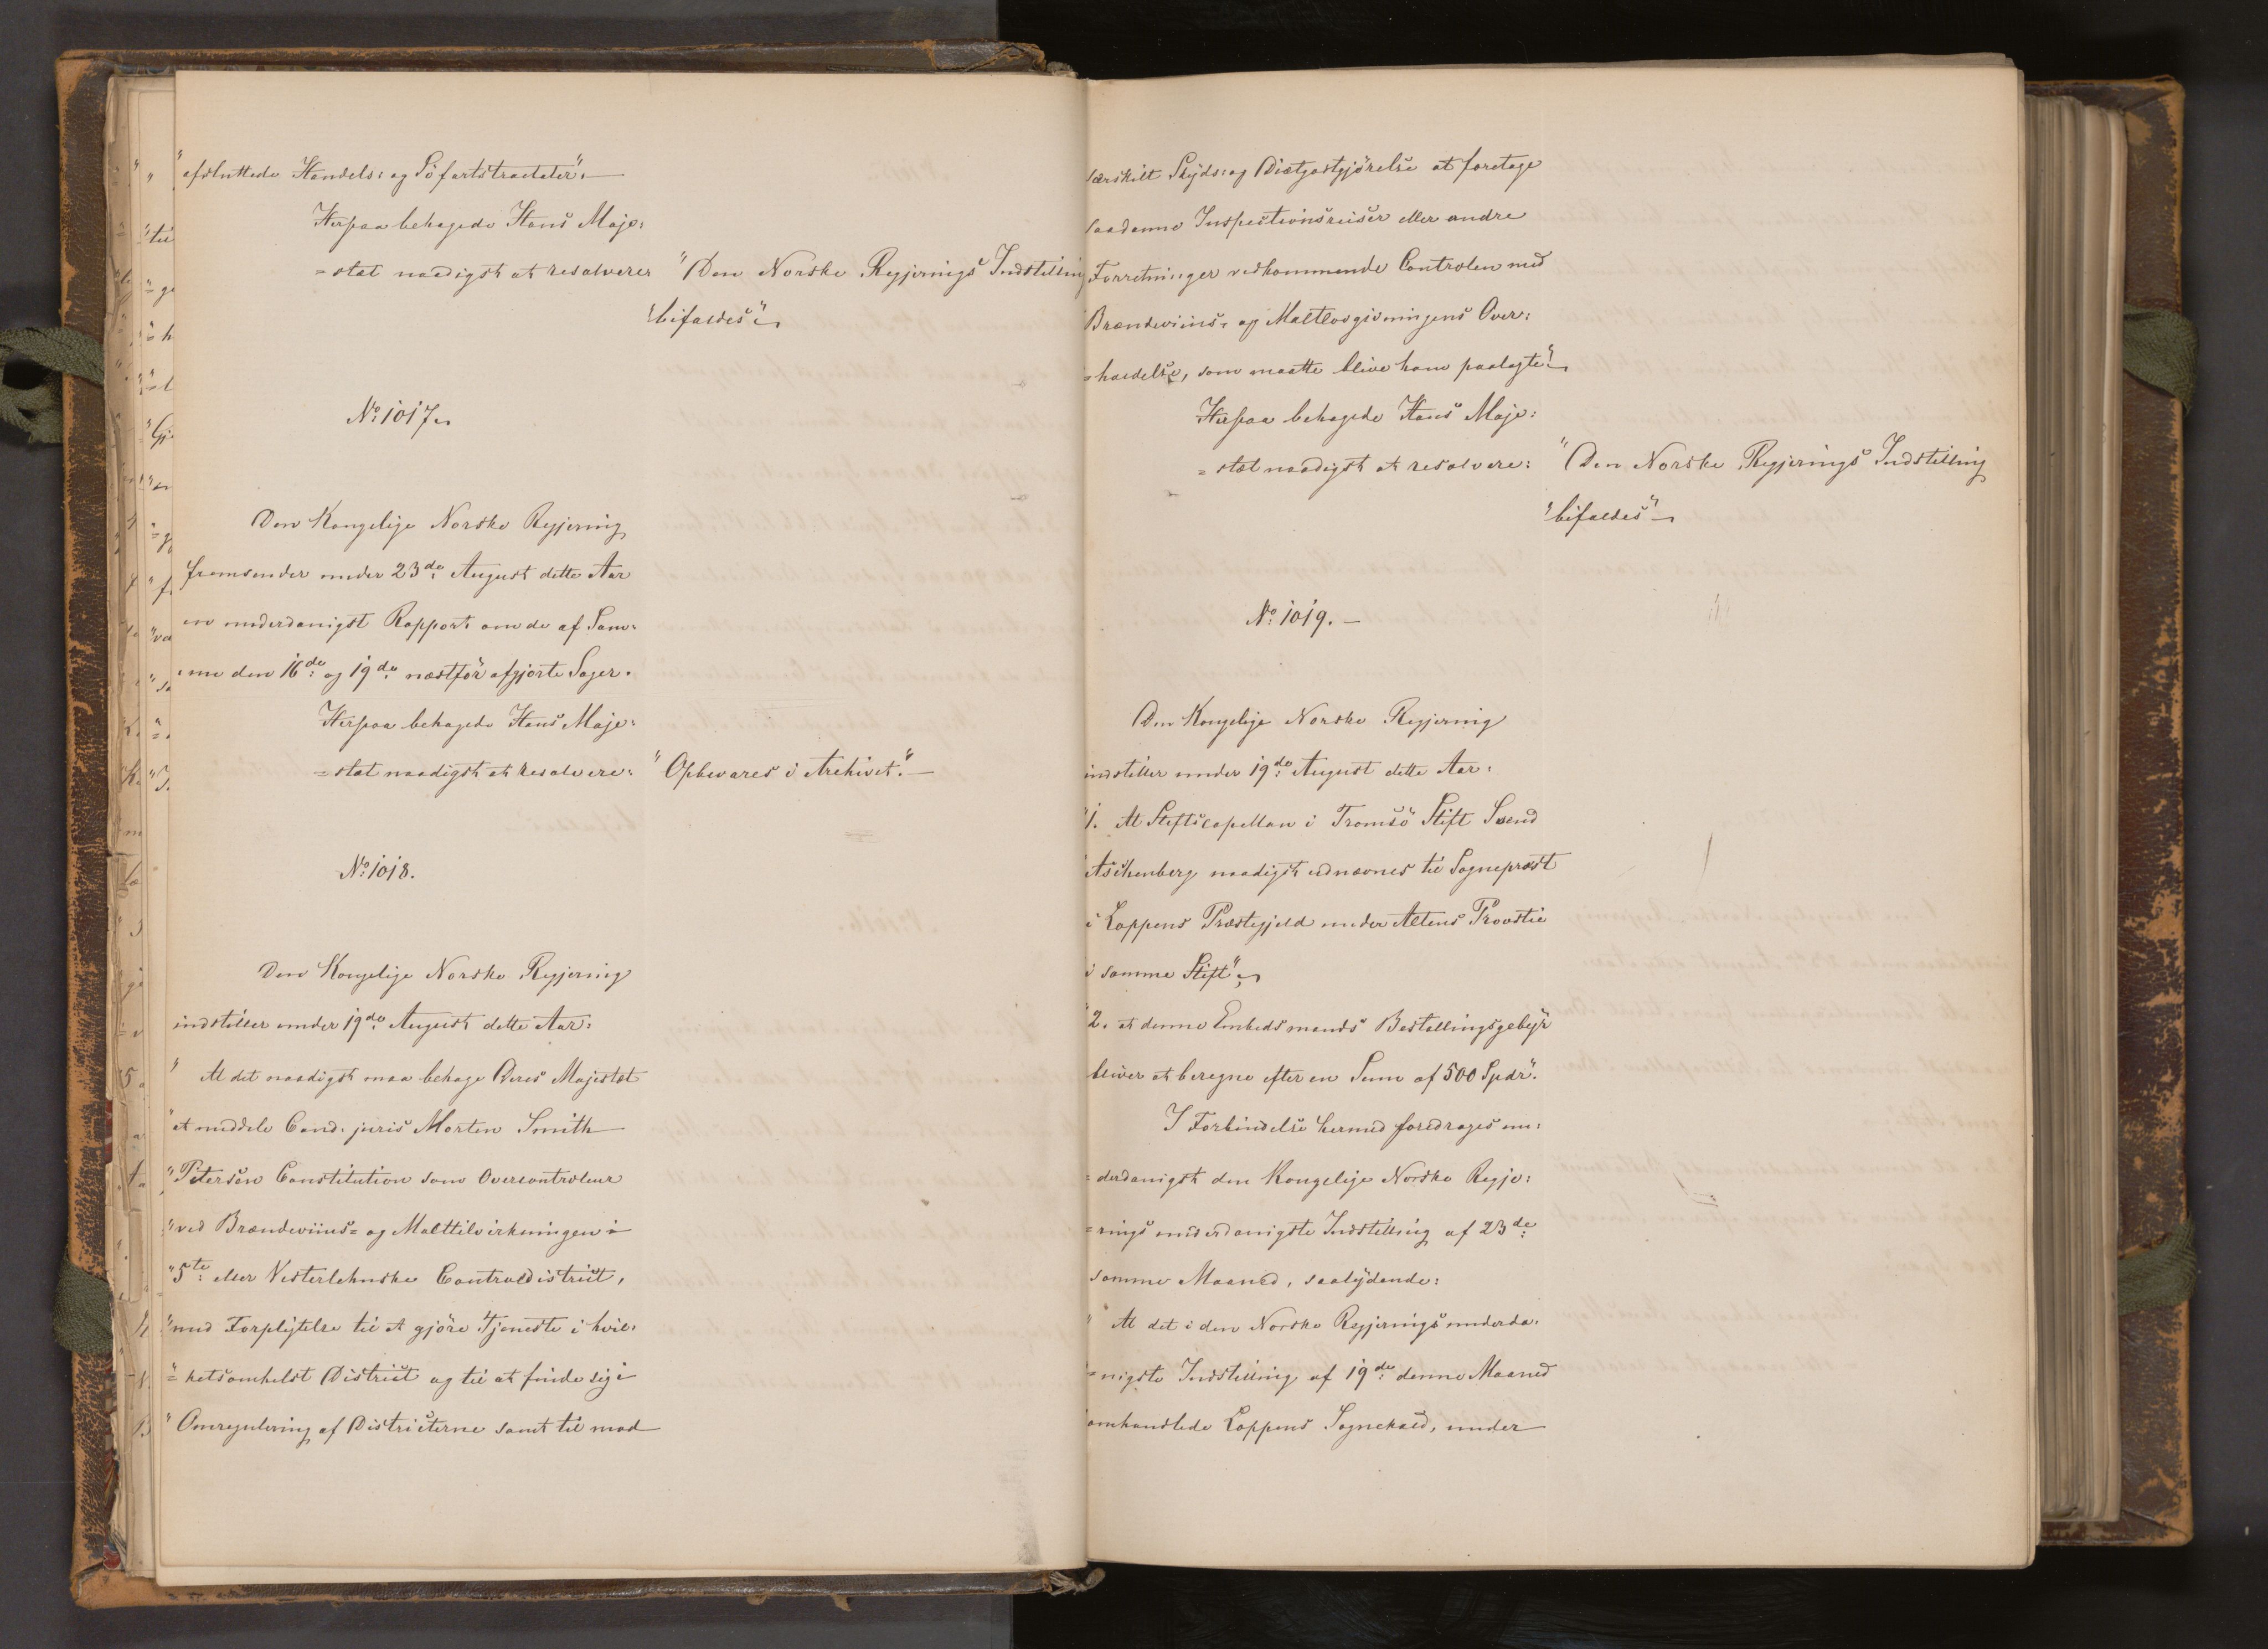 "afsluttede Handels= og Söfartstractater".—
Herpaa behagede Hans Maje=
=stæt naadigst at resolvere: "Den Norske Regjerings Indstilling
"bifaldes".
No: 1017.
Den Kongelige Norske Regjering
fremsender under 23de August dette Aar
en underdanigst Rapport om de af Sam=
=me den 16de og 19de næstför afgjorte Sager.
Herpaa behagede Hans Maje=
=stæt naadigst at resolvere: "Opbevares i Archivet."—
No: 1018.
Den Kongelige Norske Regjering
indstiller under 19de August dette Aar:
"At det naadigst maa behage Deres Majestæt
"at meddele Cand. juris Morten Smith
"Petersen Constitution som Overcontroleur
"ved Brændeviins= og Malttilvirkningen i
"5te eller Vesterlehnske Controldistrict,
"med Forpligtelse til at gjöre Tjeneste i hvil=
"=ketsomhelst District og til at finde sig i
"Omregulering af Districterne samt til mod
særskilt Skyds= og Diætgodtgjörelse at foretage
saadanne Inspectionsreiser eller andre
Forretninger vedkommende Controlen med
Brændeviins= og Maltlovgivningens Over=
=holdelse, som maatte blive ham paalagte".
Herpaa behagede Hans Maje=
=stæt naadigst at resolvere: "Den Norske Regjerings Indstilling
"bifaldes".
No: 1019.—
Den Kongelige Norske Regjering
indstiller under 19de August dette Aar:
"1. At Stiftscapellan i Tromsö Stift Svend
Aschenberg naadigst udnævnes til Sognepræst
i Loppens Præstegjeld under Altens Provstie
i samme Stift".
"2. at denne Embedsmands Bestallingsgebyr
bliver at beregne efter en Sum af 500 Spdr".
I Forbindelse hermed foredrages un=
=derdanigst den Kongelige Norske Regje=
=rings underdanigste Indstilling af 23de
samme Maaned, saalydende:
"At det i den Norske Regjerings underda=
"=nigste Indstilling af 19de denne Maaned
omhandlede Loppens Sognekald, under